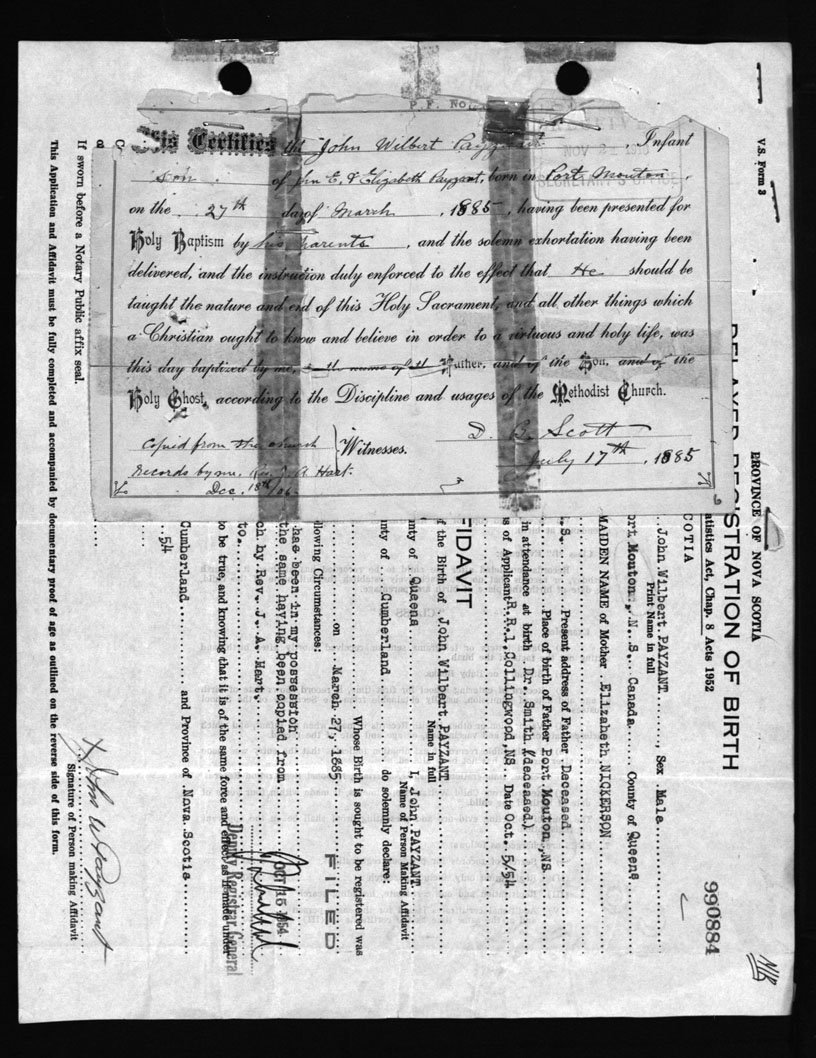 P.F. No.
This Certifies that John Wilbert Payzant, Infant
son of Jno E. & Elizabeth Payzant, born in Port Mouton,
on the 27th day of March, 1885, having been presented for
Holy Baptism by his parents, and the solemn exhortation having been
delivered, and the instruction duly enforced to the effect that He should be
taught the nature and end of this Holy Sacrament, and all other things which
a Christian ought to know and believe in order to a virtuous and holy life, was
this day baptized by me, in the name of the Father, and of the Son, and of the
Holy Ghost, according to the Discipline and usages of the Methodist Church.
D. B. Scott
Copied from the church Witnesses.
July 17th, 1885
Records by me, Rev. J. A. Hart.
Dec. 18th/06
NOV 2
SECRETARY'S OFFICE
V.S. Form 3
PROVINCE OF NOVA SCOTIA
DELAYED REGISTRATION OF BIRTH
atistics Act, Chap. 8 Acts 1952
990884
COTIA
John Wilbert PAYZANT, Sex Male
Print Name in full
ort Mouton, N.S. Canada County of Queens
MAIDEN NAME of Mother Elizabeth NICKERSON
.S. Present address of Father Deceased
Place of birth of Father Port Mouton, NS.
in attendance at birth Dr. Smith (deceased)
s of Applicant R.R.1, Collingwood, NS. Date Oct. 5/54
FIDAVIT
f the Birth of John Wilbert PAYZANT
Name in full
nty of Queens I, John PAYZANT
Name of Person Making Affidavit
nty of Cumberland do solemnly declare:
Whose Birth is sought to be registered was
on March 27, 1885
llowing Circumstances:
FILED
has been in my possession
the same having been copied from
ch by Rev. J. A. Hart.
OCT 15 1954
to.
Deputy Registrar General
o be true, and knowing that it is of the same force and effect as if made under
Cumberland and Province of Nova Scotia
54
John W Payzant
Signature of Person making Affidavit
If sworn before a Notary Public affix seal.
This Application and Affidavit must be fully completed and accompanied by documentary proof of age as outlined on the reverse side of this form.